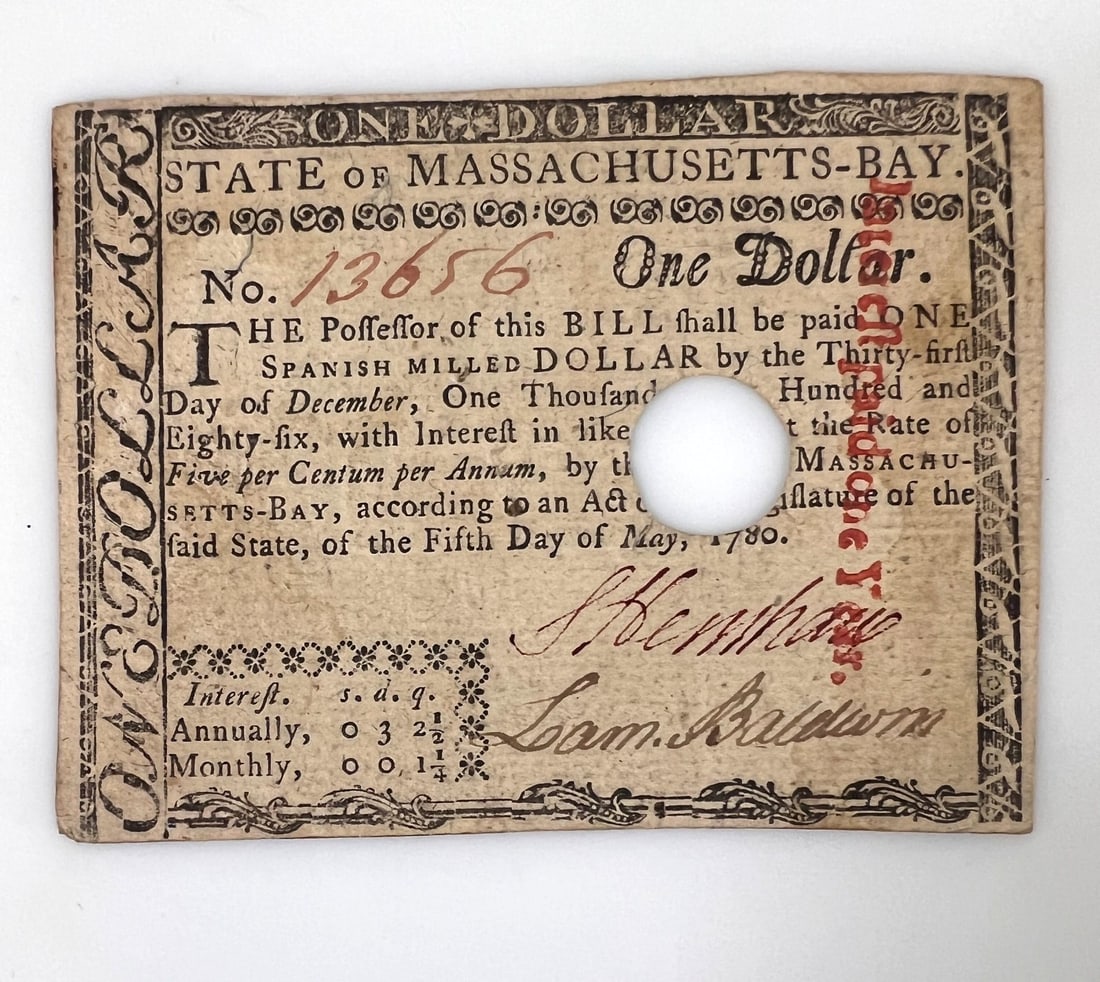 ONE DOLLAR
STATE OF MASSACHUSETTS-BAY.
No. 13656 One Dollar.
THE Poſſeſſor of this BILL ſhall be paid ONE
SPANISH MILLED DOLLAR by the Thirty-firſt
Day of December, One Thouſand Hundred and
Eighty-ſix, with Intereſt in like t the Rate of
Five per Centum per Annum, by th MASSACHU-
SETTS-BAY, according to an Act giſlature of the
ſaid State, of the Fifth Day of May, 1780.
S Henshaw
Lam. Baldwin
Intereſt. s. d. q.
Annually, 0 3 2½
Monthly, 0 0 1¼
ONE DOLLAR
Intereſt paid one Year.